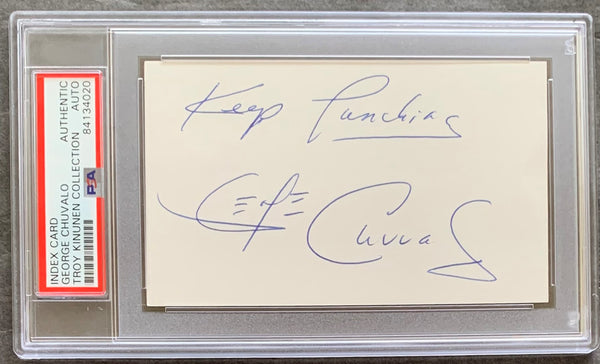 INDEX CARD
GEORGE CHUVALO
TROY KINUNEN COLLECTION
AUTHENTIC
AUTO
84134020
PSA
Keep Punching
George Chuvalo